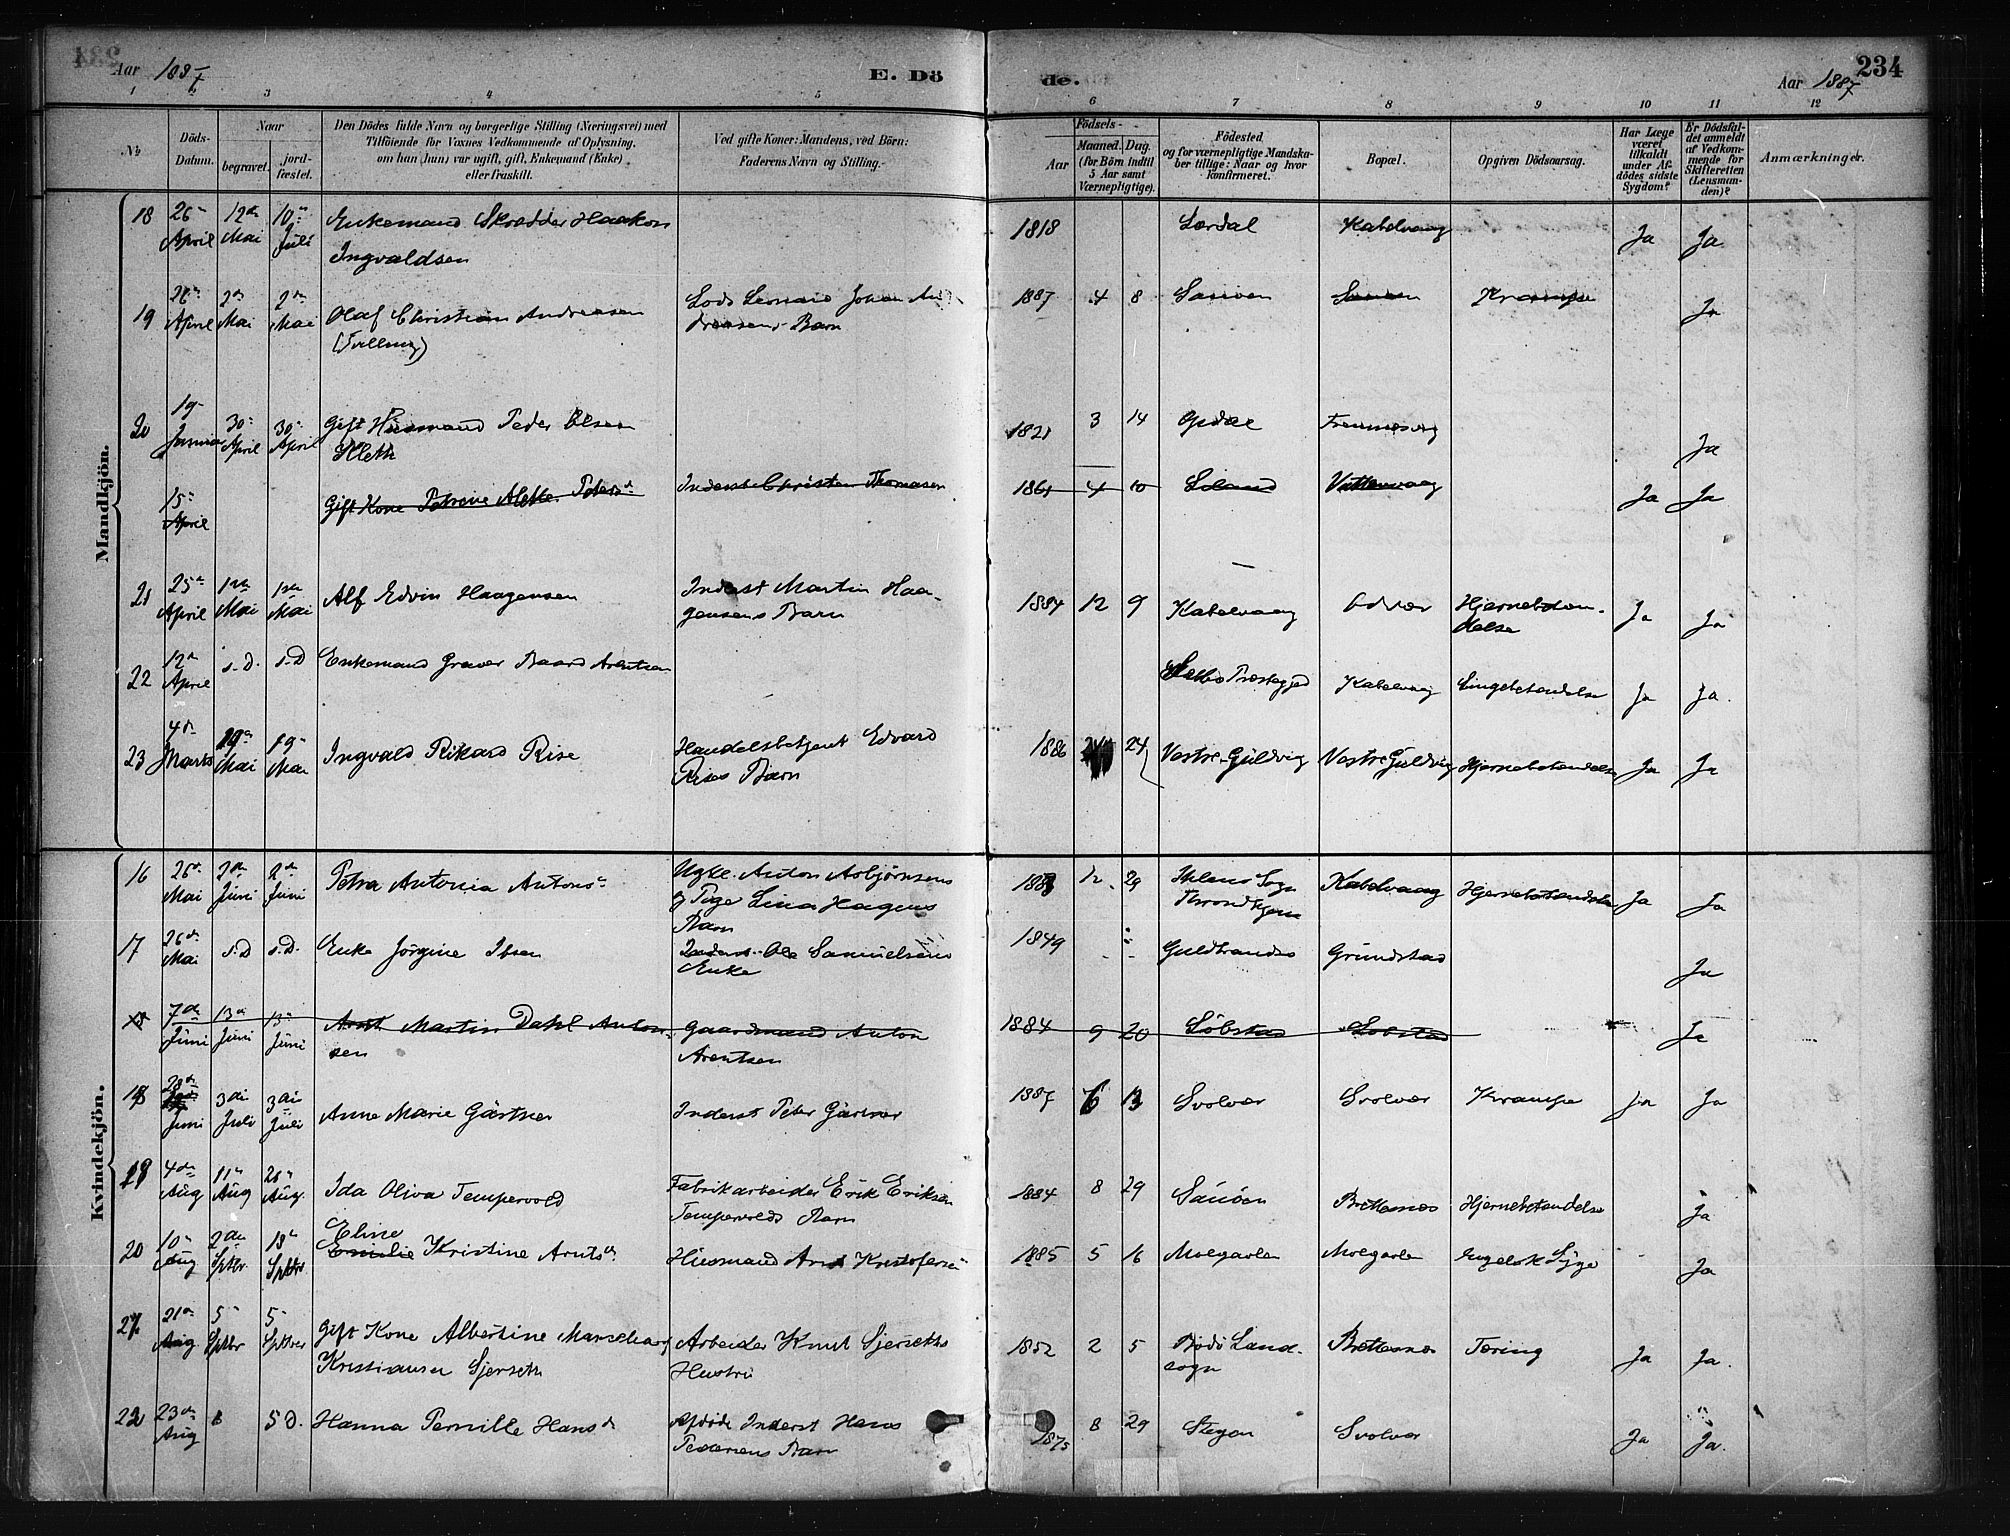 Aar 1887
E. Dö
de.
Aar 1887
234
1 2 3 4 5 6 7 8 9 10 11 12
No
Döds-Datum.
Naar
begravet.
jord-fæstet.
Den Dödes fulde Navn og borgerlige Stilling (Næringsvei) med
Tilföiende for Voxnes Vedkommende af Oplysning,
om han (hun) var ugift, gift, Enkemand (Enke)
eller fraskilt.
Ved gifte Koner: Mandens, ved Börn:
Faderens Navn og Stilling.
Födsels-
Aar
Maaned. Dag.
(for Börn indtil
5 Aar samt
Værnepligtige).
Födested
og for værnepligtige Mandska-
ber tillige: Naar og hvor
konfirmeret.
Bopæl.
Opgiven Dödsaarsag.
Har Læge
været
tilkaldt
under Af-
dödes sidste
Sygdom?
Er Dödsfal-
det anmeldt
af Vedkom-
mende for
Skifteretten
(Lensman-
den)?
Anmærkninger.
Mandkjön.
18 26 April 12te Mai 10 Juli Enkemand Skrædder Haakon Ingvaldsen 1818 Lærdal Kabelvaag Ja Ja
19 26 April 2 Mai 2 Mai Olaf Christian Andreasen (Tvilling) Lods Leonard Johan Andreasens Barn 1887 4 8 Sauöen Sauöen Krampe Ja
20 19 Januar 30 April 30 April Gift Husmand Peder Olsen Sleth 1821 3 14 Opdal Ja
15 April Gift Kone Petrine Alette Peters d Inderst Christen Thomasen 1861 4 10 Ja Ja
21 25 April 1ste Mai 1ste Mai Alf Edvin Haagensen Inderst Martin Haagensens Barn 1884 12 9 Kabelvaag Hjernebetændelse Ja Ja
22 12 April s. D. s. D Enkemand Graver Baard Arentsen Selbo Præstegjd Kabelvaag Lungebetændelse Ja Ja.
23 4de Marts 19 Mai 19 Mai Ingvald Rikard Rise Handelsbetjent Edvard Rises Barn 1886 24 Vestre Guldvig Vestre Guldvig Hjernebetændelse Ja Ja
Kvindekjön.
16 26 Mai 2den Juni 2den Juni Petra Antonia Antons d Ugke. Anton Asbjørnsens og Pige Lina Hagens Barn 12 29 Ihlens Sogn Throndhjem Kabelvaag Hjernebetændelse Ja Ja
17 26de Mai s. D s. D. Enke Jørgine Ibsen Inderst Ole Samuelsens Enke 1849 Guldbrandsö Grundstad Ja
7de Juni 13 Juni 13 Juni Arnt Martin Dahl Antonsen Gaardmand Anton Arentsen 1884 9 20 Löbstad Löbstad Ja
18 28de Juni 3die Juli 3die Juli Anne Marie Gärtner Inderst Peter Gärtner 1887 6 13 Svolvær Svolvær Krampe Ja Ja
19 4de Aug 11 Aug 26 Aug. Ida Oliva Tempervold Fabrikarbeider Erik Eriksen Tempervolds Barn 1884 8 29 Sauöen Brettesnæs Hjernebetændelse Ja
20 10 Aug 2den Sptbr 18 Sptbr Eline Emilie Kristine Arnts d Husmand Arnt Kristofersen 1885 5 16 Molgavlen Molgavlen Engelsk Syge Ja
21 21 Aug 5 Sptbr 5 Sptbr Gift Kone Albertine Kristiansen Sjerseth Arbeider Knut Sjerseths Hustru 1852 2 5 Bodö Landsogn Brettesnæs Tæring Ja Ja.
22 23de Aug S D. Hanna Pernille Hans d Afdöde Inderst Hans Pedersens Barn 1875 8 29 Stegen Svolvær Ja Ja.